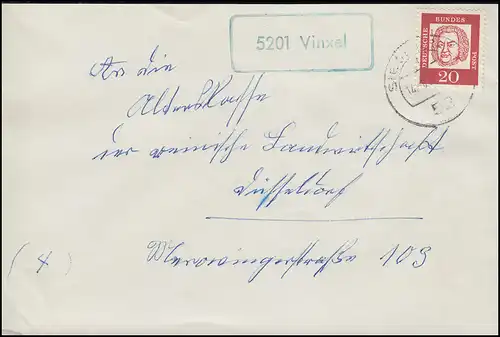 5201 Vinxel
DEUTSCHE BUNDESPOST
20
SIE
52
An die
Alterskasse
der rheinische Landwirtschaft
Düsseldorf
Merowingerstraße 103
(4)